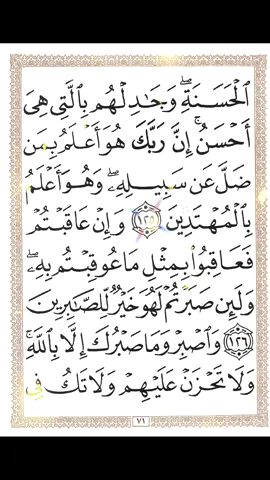 ٱلْحَسَنَةِۖ وَجَٰدِلْهُم بِٱلَّتِى هِىَ
أَحْسَنُۚ إِنَّ رَبَّكَ هُوَ أَعْلَمُ بِمَن
ضَلَّ عَن سَبِيلِهِۦۖ وَهُوَ أَعْلَمُ
بِٱلْمُهْتَدِينَ ١٢٥ وَإِنْ عَاقَبْتُمْ
فَعَاقِبُوا۟ بِمِثْلِ مَا عُوقِبْتُم بِهِۦۖ
وَلَئِن صَبَرْتُمْ لَهُوَ خَيْرٌ لِّلصَّٰبِرِينَ
١٢٦ وَٱصْبِرْ وَمَا صَبْرُكَ إِلَّا بِٱللَّهِۚ
وَلَا تَحْزَنْ عَلَيْهِمْ وَلَا تَكُ فِى
٧١